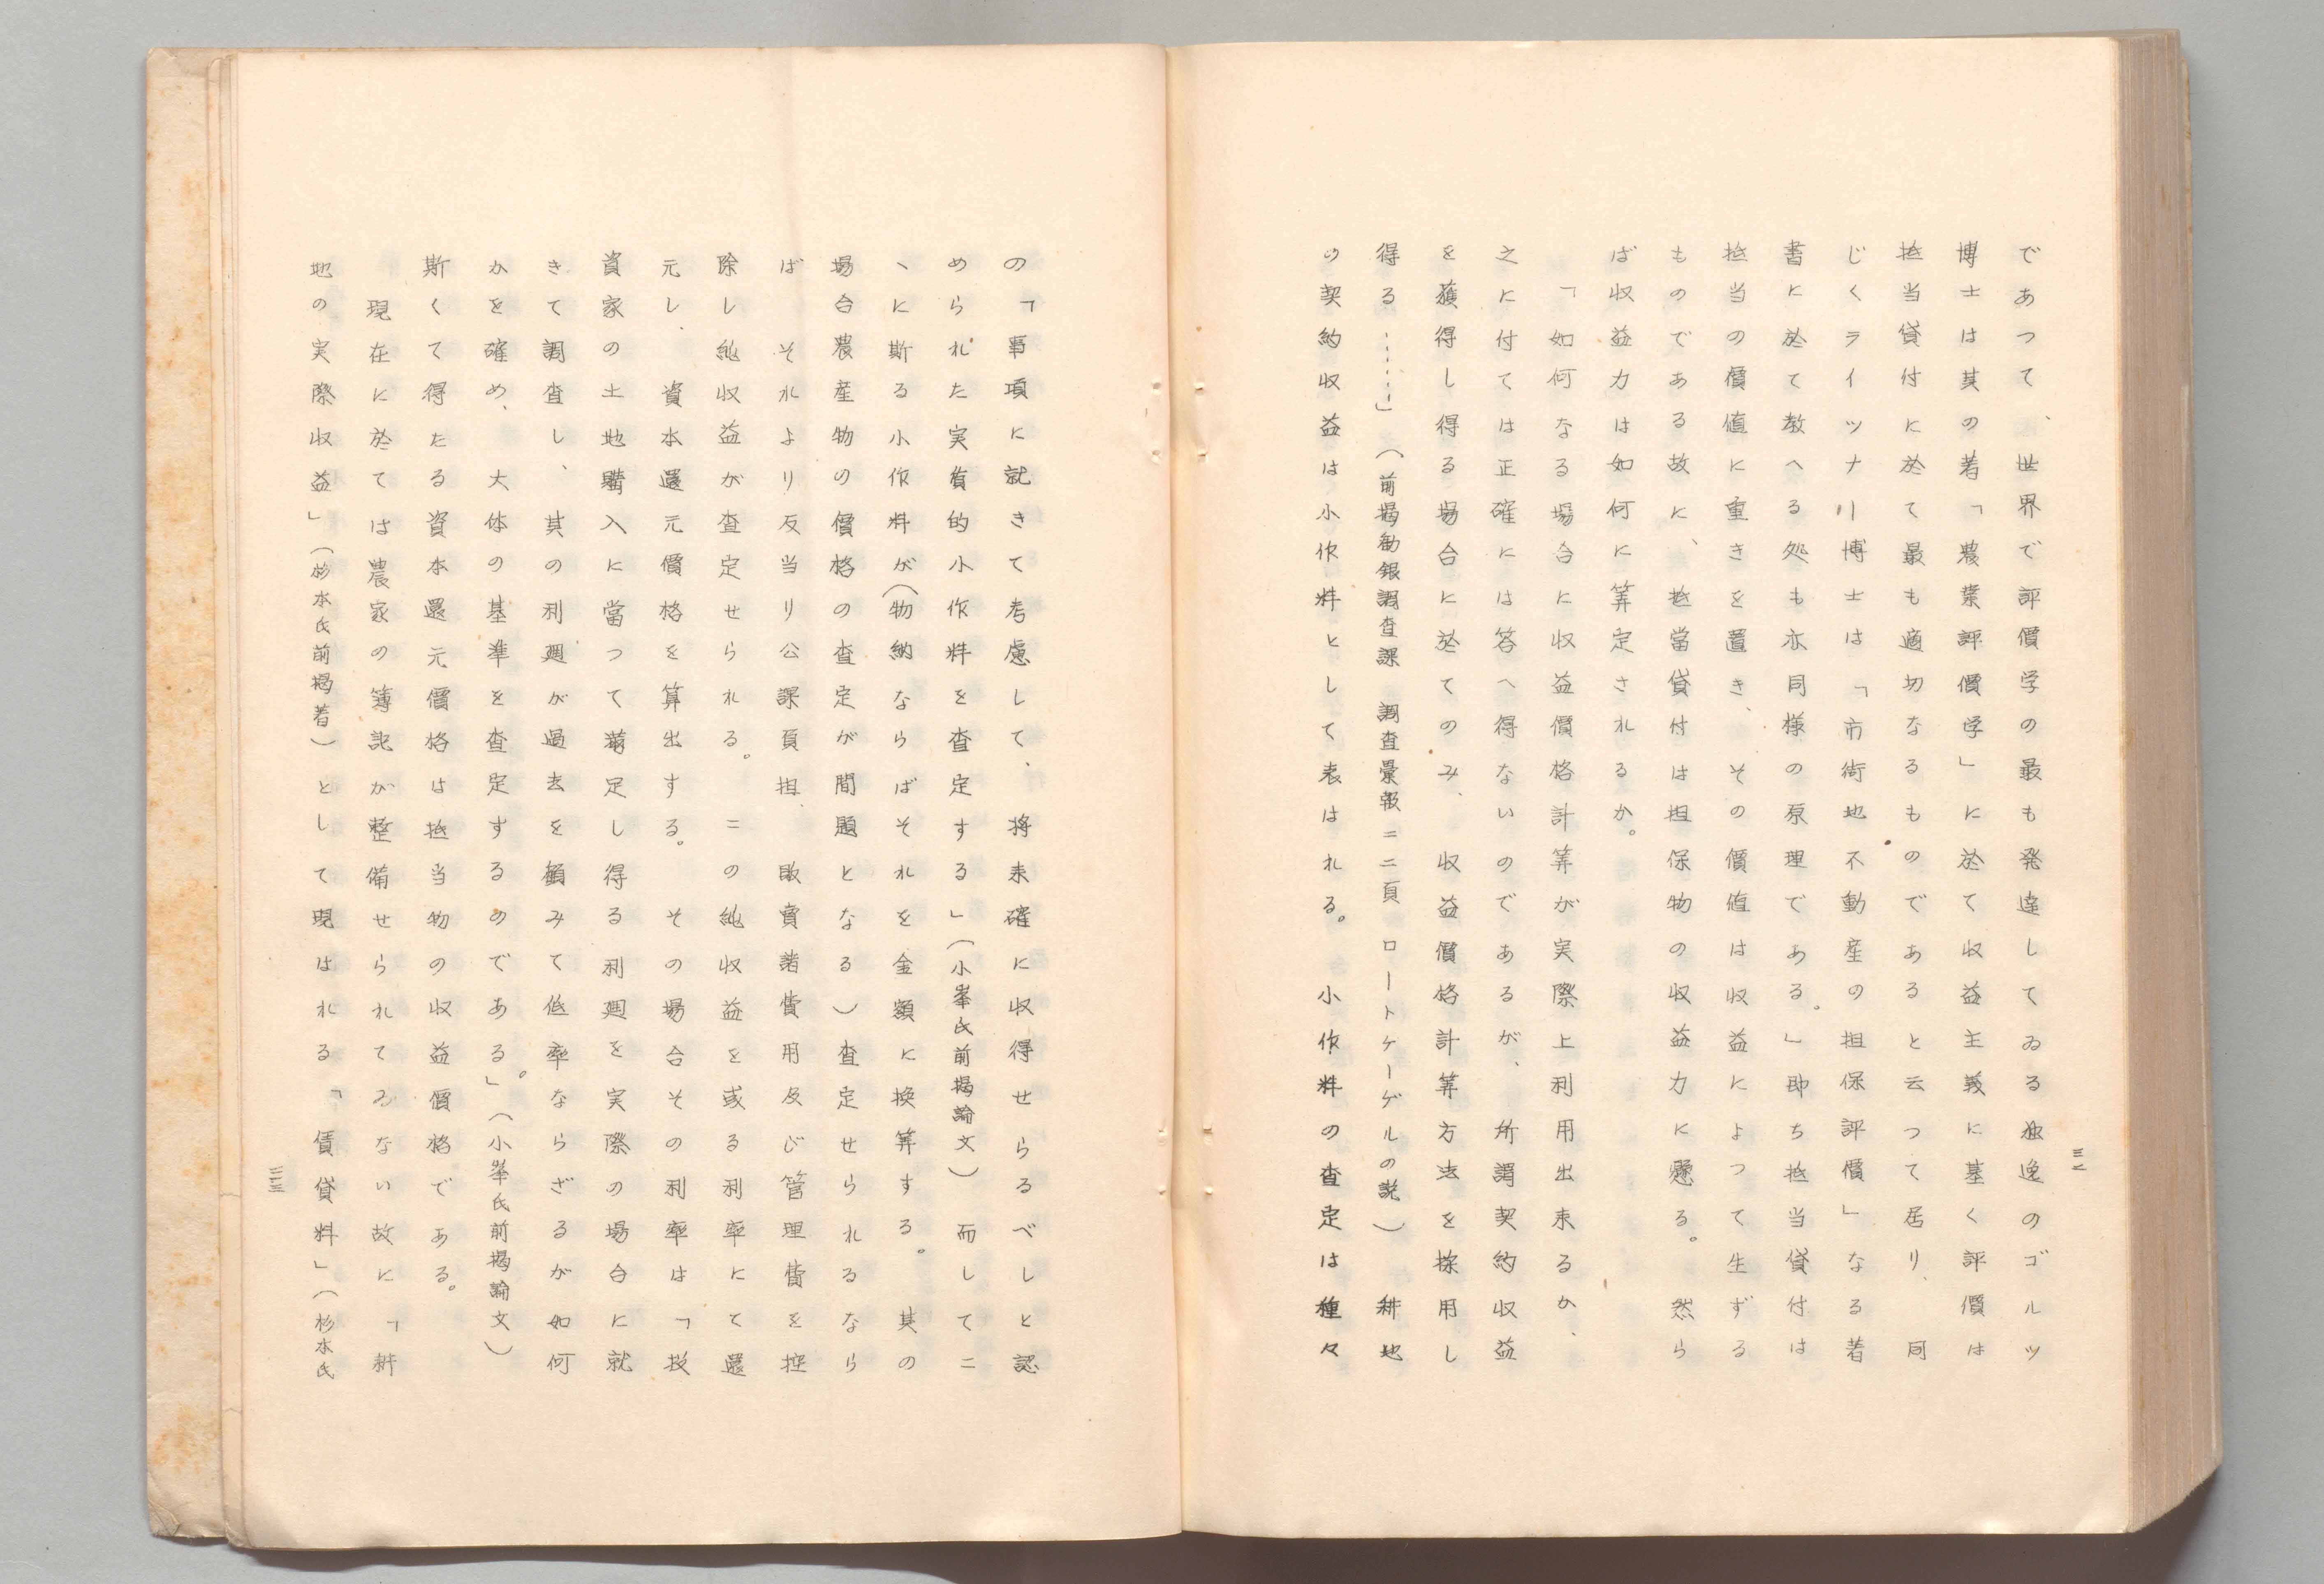 であつて、世界で評價学の最も発達してゐる独逸のゴルツ
博士は其の著「農業評價学」に於て収益主義に基く評價は
抵当貸付に於て最も適切なるものであると云つて居り、同
じくライツナリ博士は「市街地不動産の担保評價」なる著
書に於て教へる処も亦同様の原理である。」即ち抵当貸付は
抵当の價値に重きを置き、その價値は収益によつて生ずる
ものである故に、抵當貸付は担保物の収益力に懸る。然ら
ば収益力は如何に算定されるか。
「如何なる場合に収益價格計算が実際上利用出来るか、
之に付ては正確には答へ得ないのであるが、所謂契約収益
を獲得し得る場合に於てのみ、収益價格計算方法を採用し
得る……」（前掲勧銀調査課　調査彙報二二頁　ロートケーゲルの説）耕地
の契約収益は小作料として表はれる。小作料の査定は種々
の「事項に就きて考慮して、将来確に収得せらるべしと認
められた実質的小作料を査定する」（小峯氏前掲論文）而してこ
ゝに斯る小作料が（物納ならばそれを金額に換算する。其の
場合農産物の價格の査定が問題となる）査定せられるなら
ば、それより反当り公課負担、敗賣諸費用及び管理費を控
除し純収益が査定せられる。この純収益を或る利率にて還
元し、資本還元價格を算出する。その場合その利率は「投
資家の土地購入に當つて満足し得る利廻を実際の場合に就
きて調査し、其の利廻が過去を顧みて低率ならざるが如何
かを確め、大体の基準を査定するのである。」（小峯氏前掲論文）
斯くて得たる資本還元價格は抵当物の収益價格である。
現在に於ては農家の簿記が整備せられてゐない故に「耕
地の実際収益」（杉本氏前掲著）として現はれる「賃貸料」（杉本氏